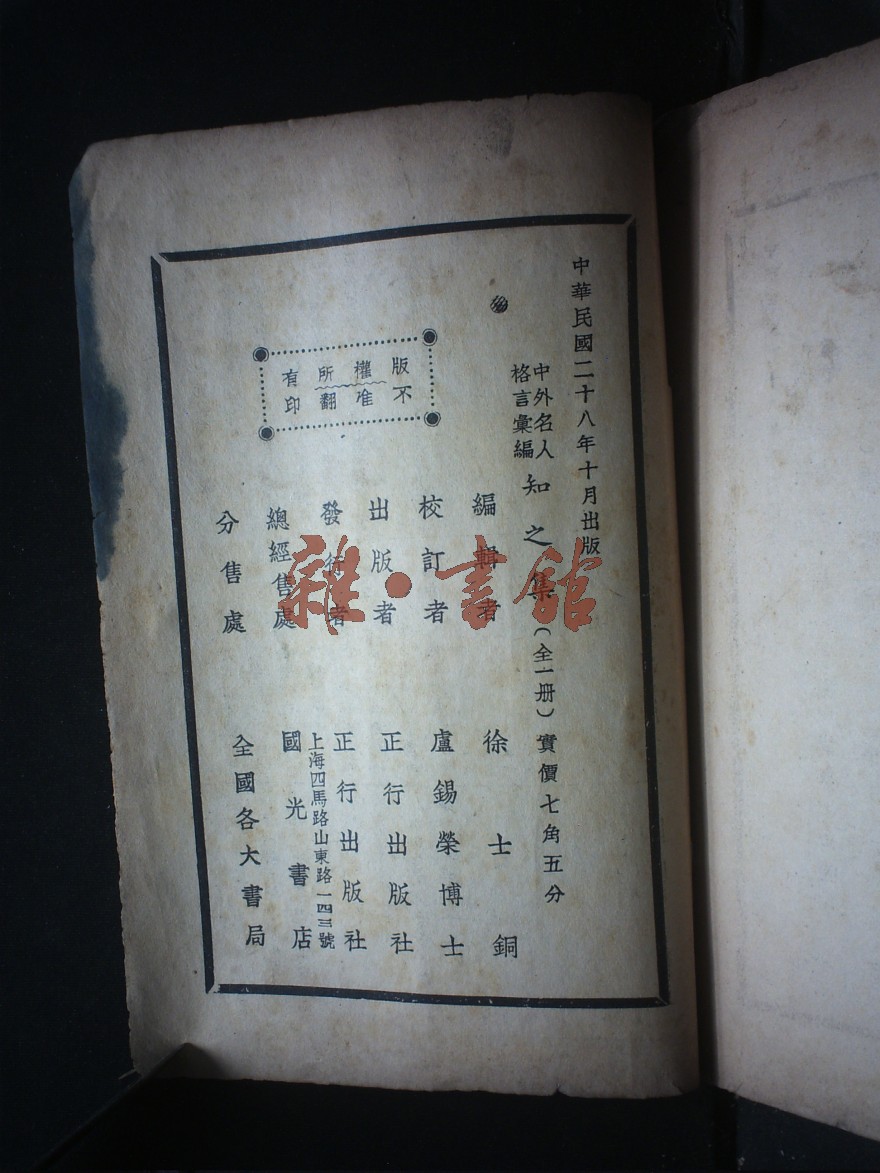 中華民國二十八年十月出版
中外名人
格言彙編
知之集（全一册）實價七角五分
編輯者 徐士銅
校訂者 盧錫榮博士
出版者 正行出版社
發行者 正行出版社
上海四馬路山東路一四三號
總經售處 國光書店
分售處 全國各大書局
版權所有
不准翻印
雜·書館